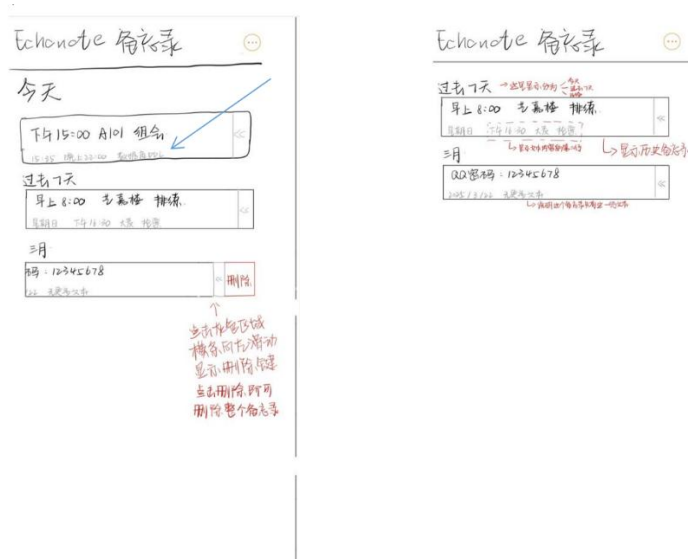 Echonote 备忘录
今天
下午15:00 A101 组会
15:35 晚上22:00
过去7天
早上 8:00 志嘉楼 排练
星期日 下午16:30 大景 检票
三月
码：12345678
删除
点击灰色区域
横条向左滑动
显示删除键
点击删除即可
删除整个备忘录
Echonote 备忘录
过去7天
→这里显示分为
今天
过去7天
早上 8:00 志嘉楼 排练
星期日 下午16:30 大景 检票
显示历史备忘录
三月
QQ密码：12345678
2025/3/22 无更多文本